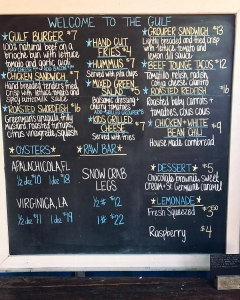 WELCOME TO THE GULF
GULF BURGER $7
100% natural beef on a
brioche bun with lettuce
tomato and garlic
CHICKEN SANDWICH $7
Hand breaded tenders fried
Crisp with lettuce, tomato and
Spicy buttermilk sauce
SWORDFISH $16
Greermans arugula, fruity
mustard roasted turnips,
Citrus vinaigrette, squash
HAND CUT
FRIES $4
HUMMUS $7
Served with pita chips
MIXED GREEN
Balsamic dressing,
Cherry tomatoes
KIDS GRILLED
CHEESE
Served with fries
GROUPER SANDWICH $13
Lightly breaded and fried crisp
with lettuce, tomato and
lemon dill sauce
BEEF TOUNGE TACOS $12
Tomatillo relish, radish,
citrus cabbage
ROASTED REDFISH $16
Roasted baby carrots +
tomatoes, cous cous
CHICKEN + WHITE
BEAN CHILI $9
House made cornbread
OYSTERS
APALACHICOLA, FL
1/2 dz $10 1 dz $18
VIRGINIA, LA
1/2 dz $11 1 dz $19
RAW BAR
SNOW CRAB
LEGS
1/2 # $12
1 # $22
DESSERT $5
Chocolate brownie, sweet
cream + St. Germaine caramel
LEMONADE
Fresh Squeezed $3.50
Raspberry $4